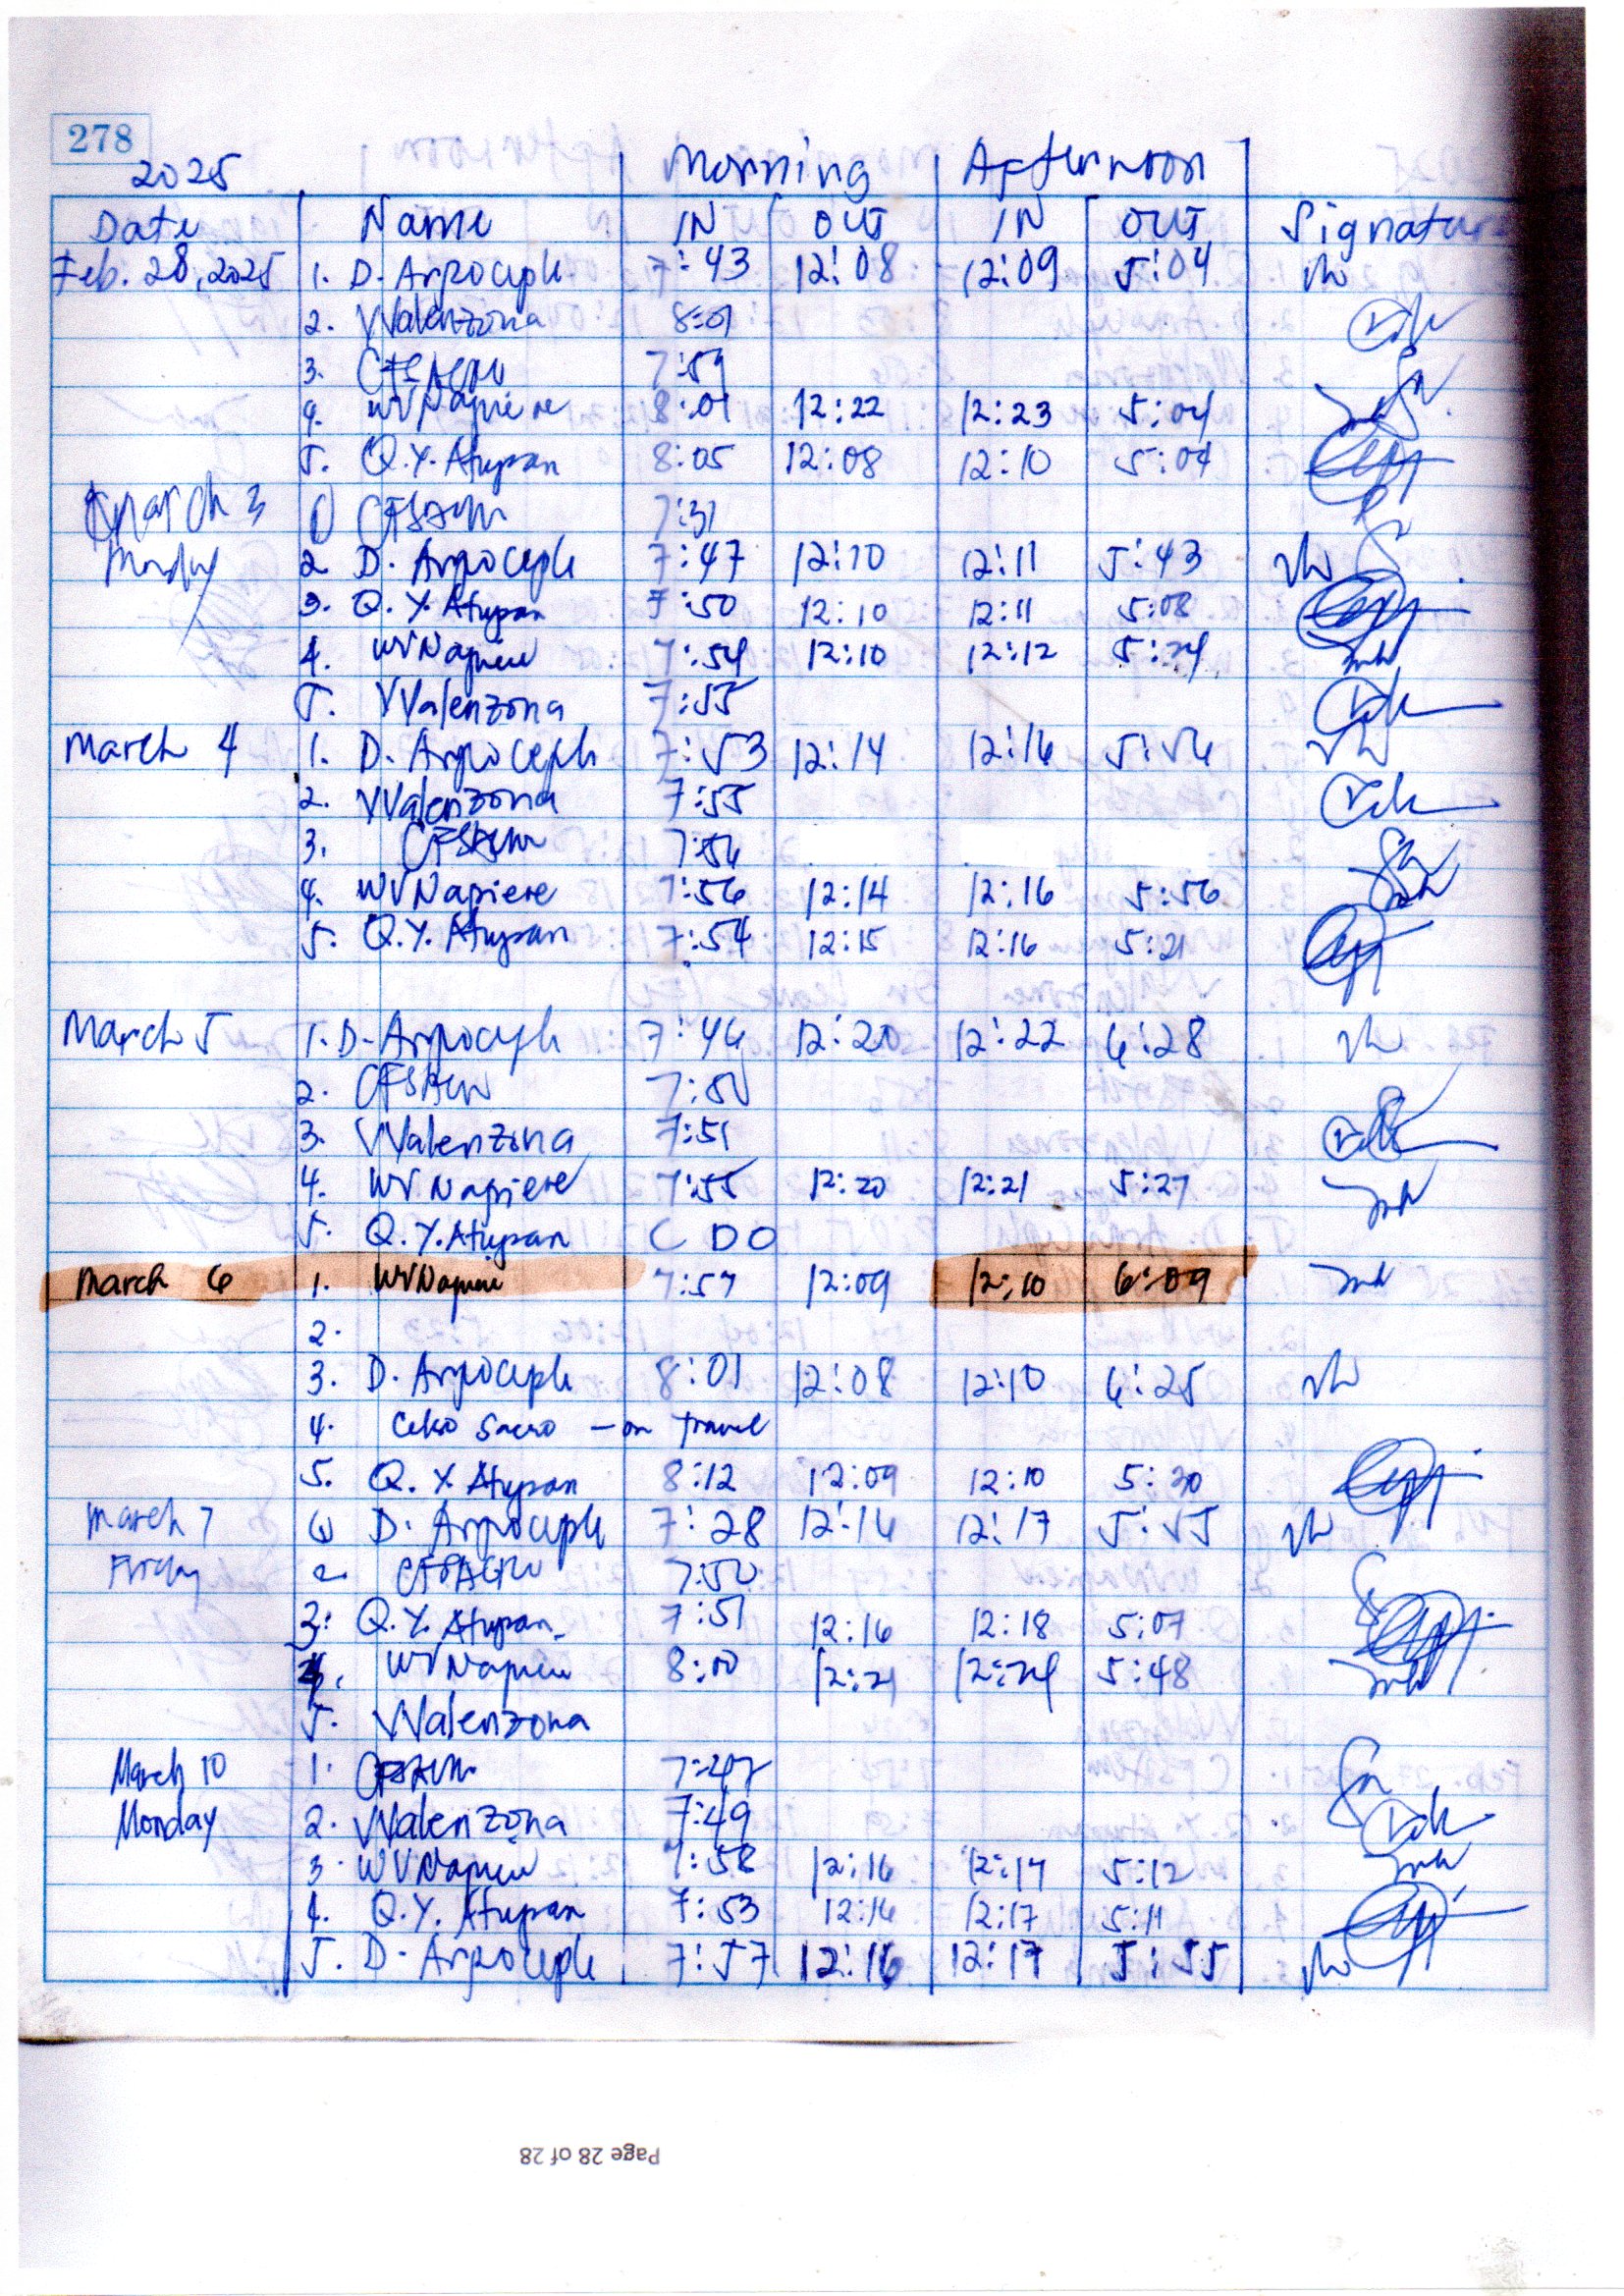 278
2025 Morning Afternoon
Date Name IN OUT IN OUT Signature
Feb. 28, 2025 1. D. Arpoceple 7:43 12:08 12:09 5:04
2. VValenzona 8:01
3. CFSAero 7:59
4. WV Napiere 8:01 12:22 12:23 5:04
5. Q.Y. Atupan 8:05 12:08 12:10 5:04
March 3 1 7:31
Monday 2 D. Arpoceple 7:47 12:10 12:11 5:43
3. Q.Y. Atupan 7:50 12:10 12:11 5:08
4. WV Napiere 7:54 12:10 12:12 5:24
5. VValenzona 7:55
March 4 1. D. Arpoceple 7:53 12:14 12:16 5:56
2. VValenzona 7:55
3. 7:56
4. WV Napiere 7:56 12:14 12:16 5:56
5. Q.Y. Atupan 7:54 12:15 12:16 5:21
March 5 1. D. Arpoceple 7:46 12:20 12:22 6:28
2. 7:50
3. VValenzona 7:51
4. WV Napiere 7:55 12:20 12:21 5:27
5. Q.Y. Atupan C D O
March 6 1. WV Napiere 7:57 12:09 12:10 6:09
2.
3. D. Arpoceple 8:01 12:08 12:10 6:25
4. - on travel
5. Q.Y. Atupan 8:12 12:09 12:10 5:30
March 7 D. Arpoceple 7:28 12:16 12:17 5:55
Friday 2 7:50
3. Q.Y. Atupan 7:51 12:16 12:18 5:07
4. WV Napiere 8:00 12:21 12:24 5:48
5. VValenzona
March 10 1.
Monday 2. VValenzona 7:49
3. WV Napiere 7:58 12:16 12:17 5:12
4. Q.Y. Atupan 7:53 12:16 12:17 5:11
5. D. Arpoceple 7:57 12:16 12:17 5:55
Page 28 of 28